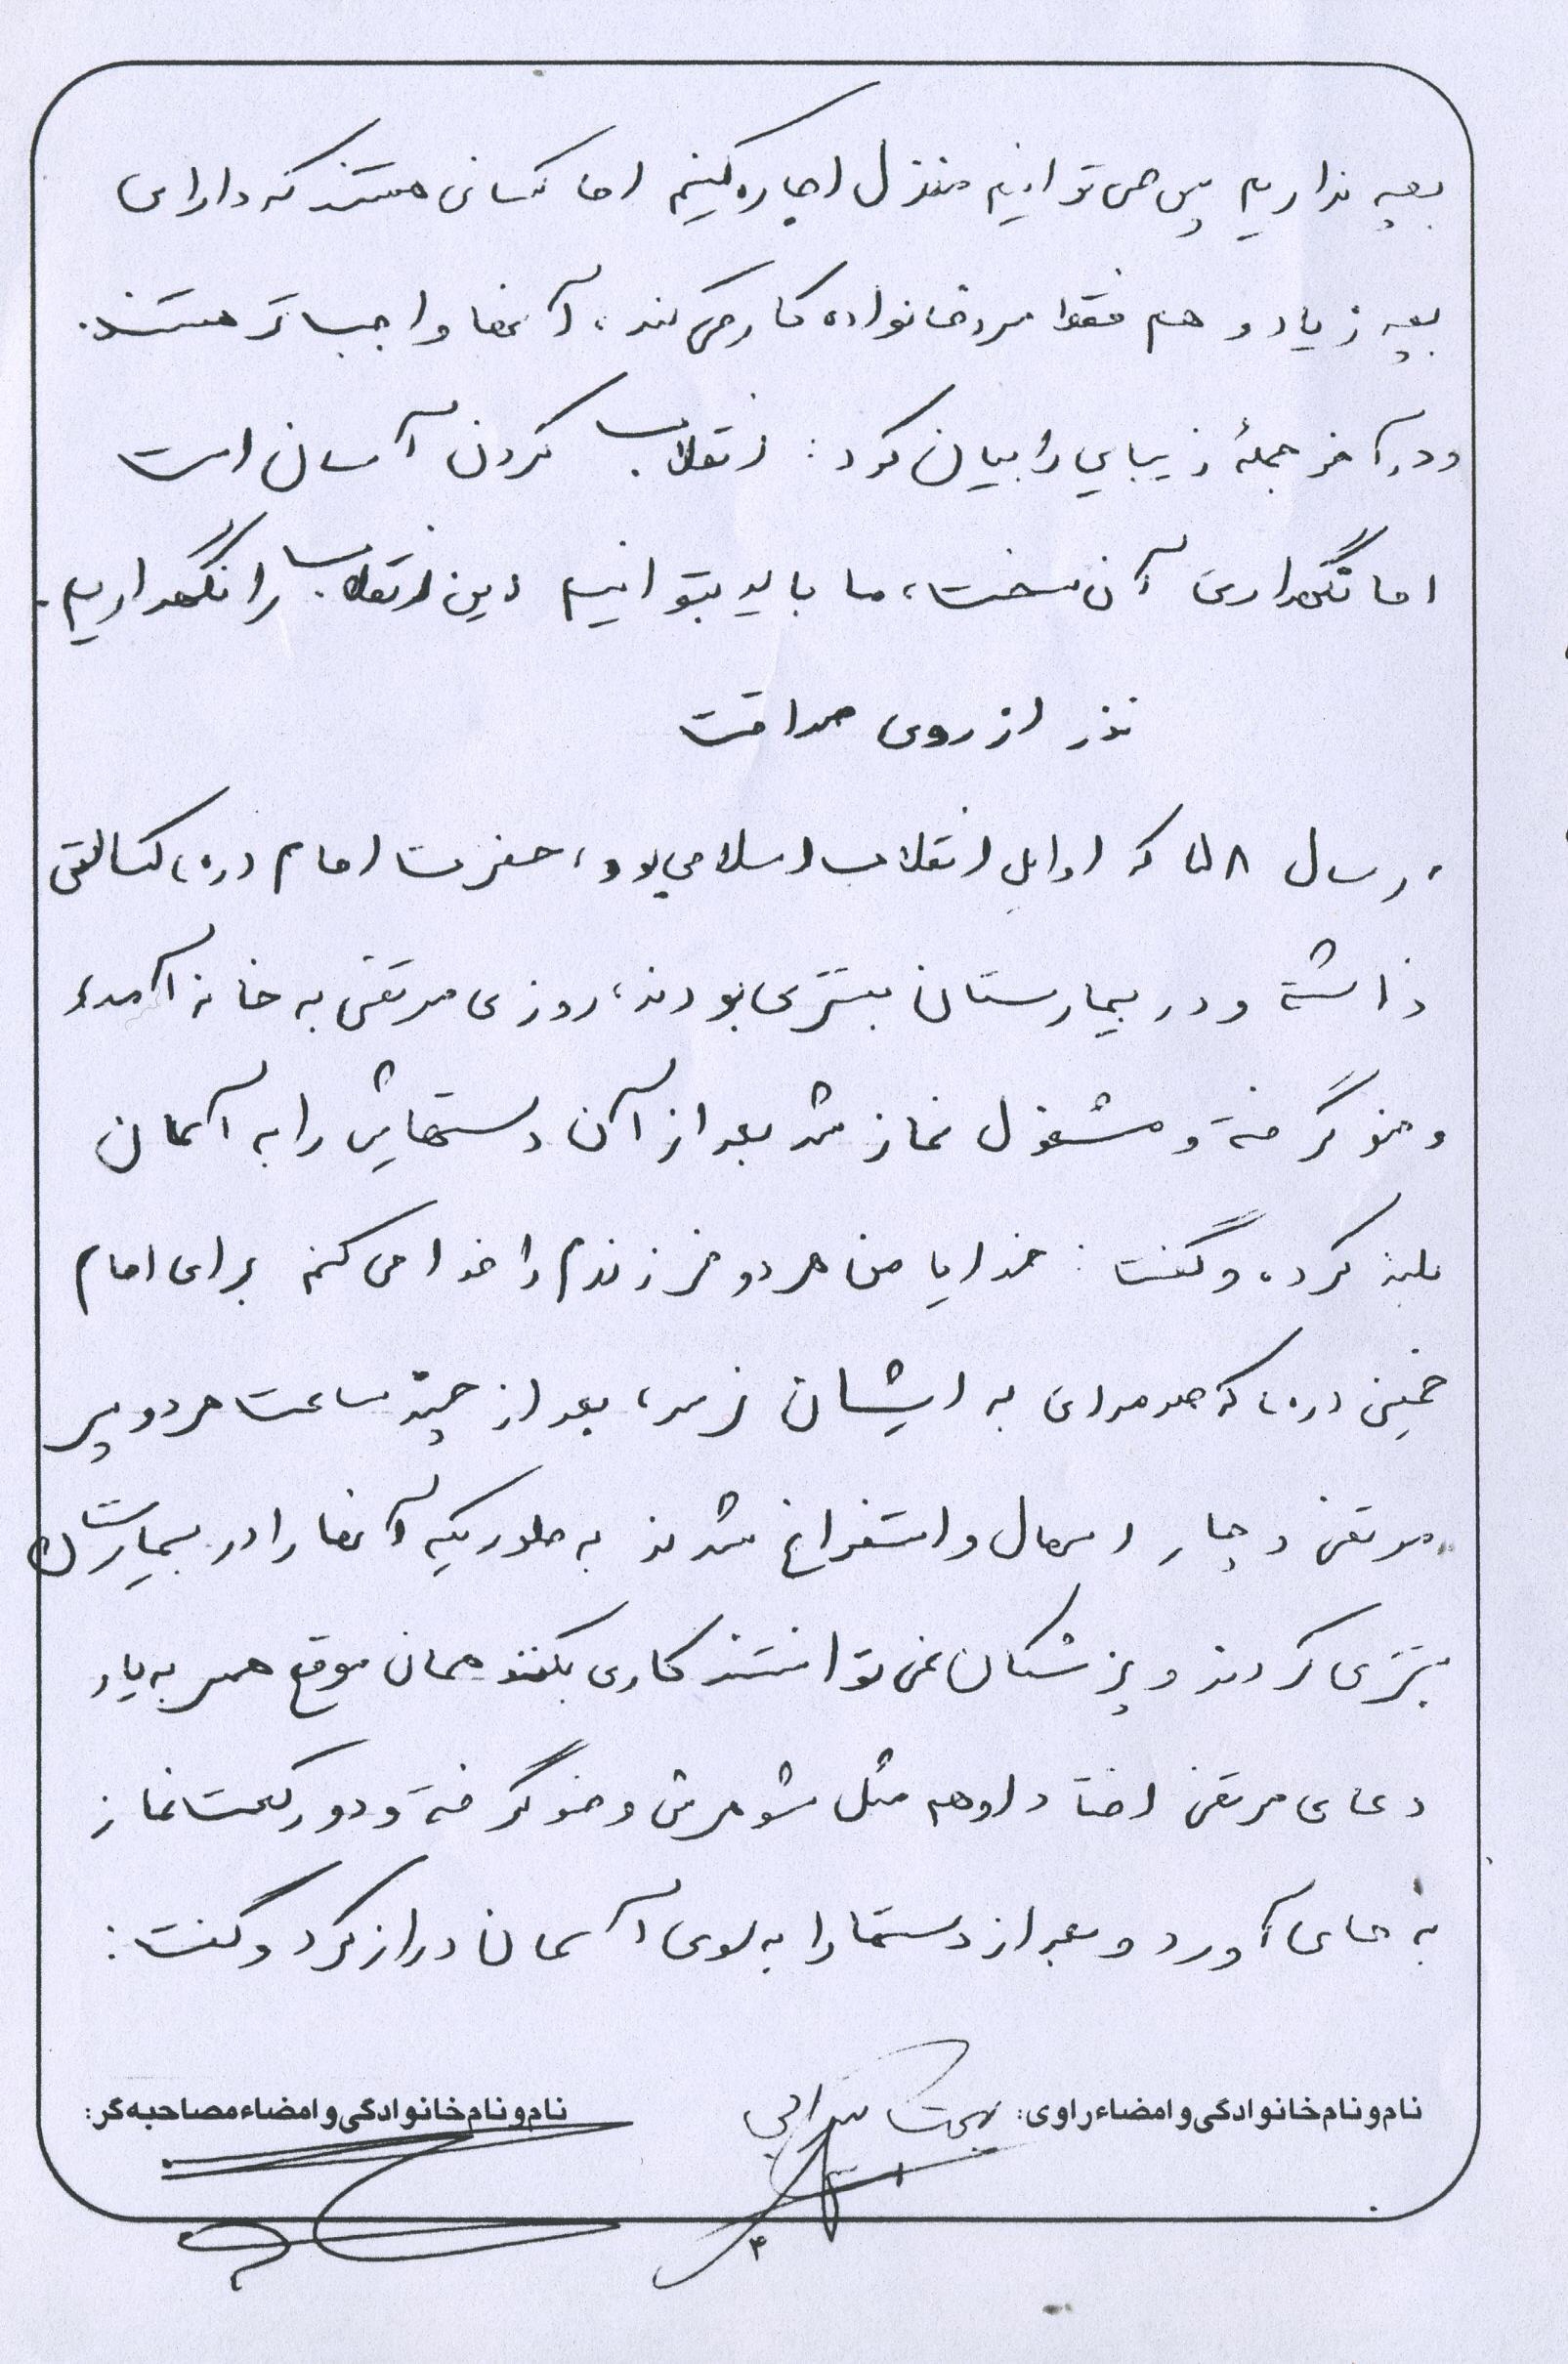 بچه نداریم پس می توانیم منزل اجاره کنیم اما کسانی هستند که دارای
بچه زیاد و هم فقط مرد خانواده کار می کند، آنها واجب تر هستند.
و در آخر جملهٔ زیبایی را بیان کرد: انقلاب کردن آسان است
اما نگهداری آن سخت، ما باید بتوانیم این انقلاب را نگهداریم.
نذر از روی صداقت
در سال ۵۸ که اوایل انقلاب اسلامی بود، حضرت امام (ره) کسالتی
داشته و در بیمارستان بستری بودند، روزی مرتضی به خانه آمده
وضو گرفته و مشغول نماز شد بعد از آن دستهایش را به آسمان
بلند کرده و گفت: خدایا من هر دو فرزندم را فدا می کنم برای امام
خمینی (ره) که صدمه ای به ایشان نرسد، بعد از چند ساعت هر دو پسر
مرتضی دچار اسهال و استفراغ شدند به طوریکه آنها را در بیمارستان
بستری کردند و پزشکان نمی توانستند کاری بکنند همان موقع همسر به یاد
دعای مرتضی افتاد او هم مثل شوهرش وضو گرفته و دو رکعت نماز
به جای آورد و بعد از دستها را به سوی آسمان دراز کرد و گفت:
نام و نام خانوادگی و امضاء راوی: بهجت
نام و نام خانوادگی و امضاء مصاحبه گر: